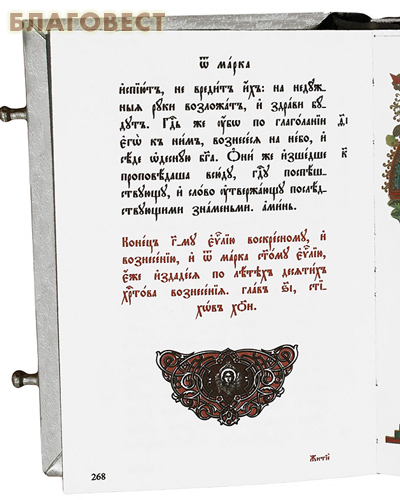 БЛАГОВЕСТ
Ѿ ма́рка
и҆спїю́тъ, не вреди́тъ и҆́хъ: на недꙋ́ж-
ныѧ рꙋ́ки возложа́тъ, и҆ здра́ви бꙋ́-
дꙋтъ. Гдⷭ҇ь же ᲂу҆́бѡ по глаго́ланїи
є҆гѡ̀ къ ни̑мъ, вознесе́сѧ на не́бо, и҆
сѣ́де ѡ҆деснꙋ́ю бг҃а. Ѻ҆ни́ же и҆зше́дше
проповѣ́даша всю́дꙋ, гдⷭ҇ꙋ поспѣ́ш-
ствꙋющꙋ, и҆ сло́во ᲂу҆твержа́ющꙋ послѣ́д-
ствꙋющими зна́меньми. а҆ми́нь.
Коне́цъ г҃-мꙋ є҆ѵⷢ҇лїю воскре́сномꙋ, и҆
вознесе́нїю, и҆ ѿ ма́рка ст҃о́мꙋ є҆ѵⷢ҇лїю,
є҆́же и҆здаде́сѧ по лѣ́тѣхъ десѧти́хъ
хрⷭ҇то́ва вознесе́нїѧ. гла́въ ѕ҃і, сті-
хѡ́въ
268